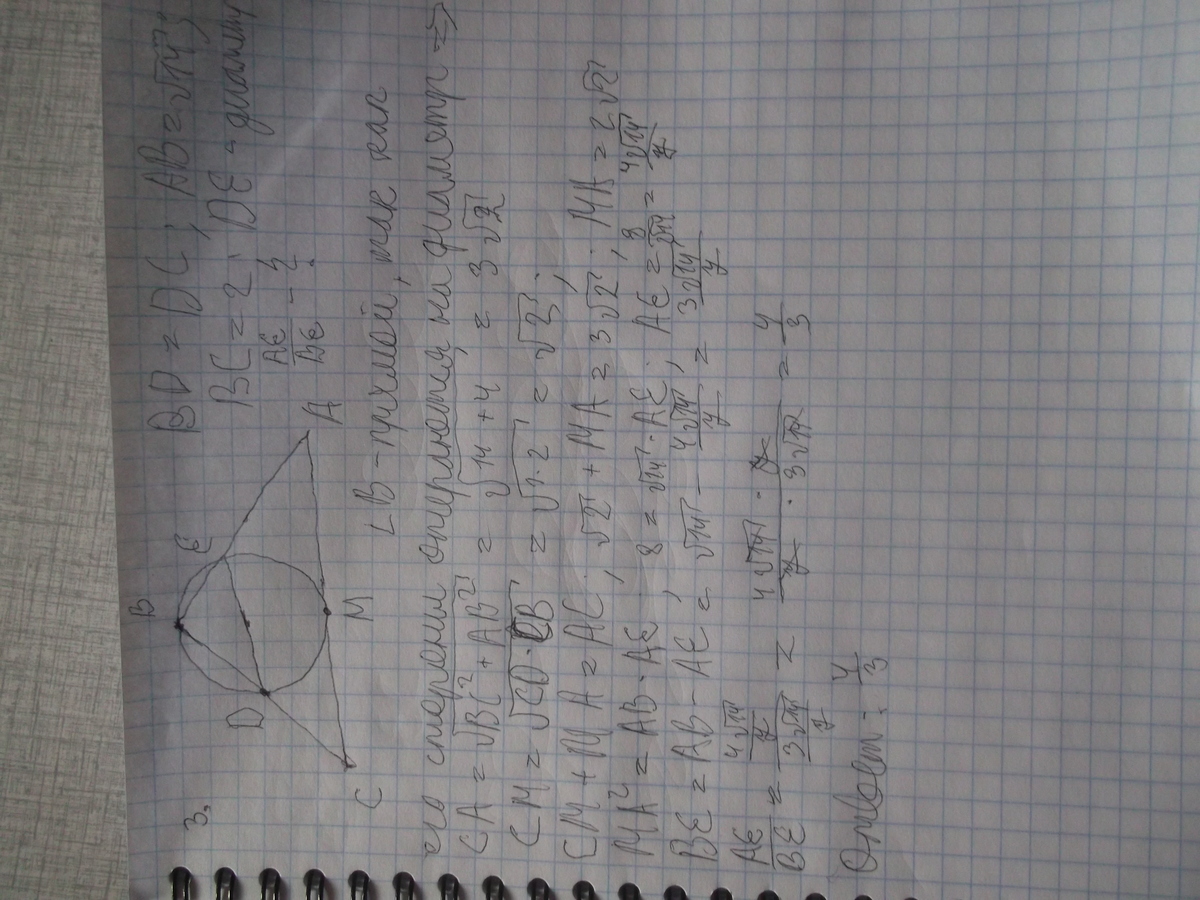 3.
B
E
D
A
M
C
BD = DC; AB = √14;
BC = 2; DE - диаметр
AE/BE - ?
∠B - прямой, так как
его стороны опираются на диаметр ⇒
CA = √BC² + AB² = √14 + 4 = 3√2
CM = √CD · CB = √1·2 = √2;
CM + MA = AC; √2 + MA = 3√2; MA = 2√2
MA² = AB · AE; 8 = √14 · AE; AE = 8/√14 = 4√14/7
BE = AB - AE = √14 - 4√14/7 = 3√14/7
AE/BE = 4√14/7 / 3√14/7 = 4√14 · 7 / 7 · 3√14 = 4/3
Ответ: 4/3